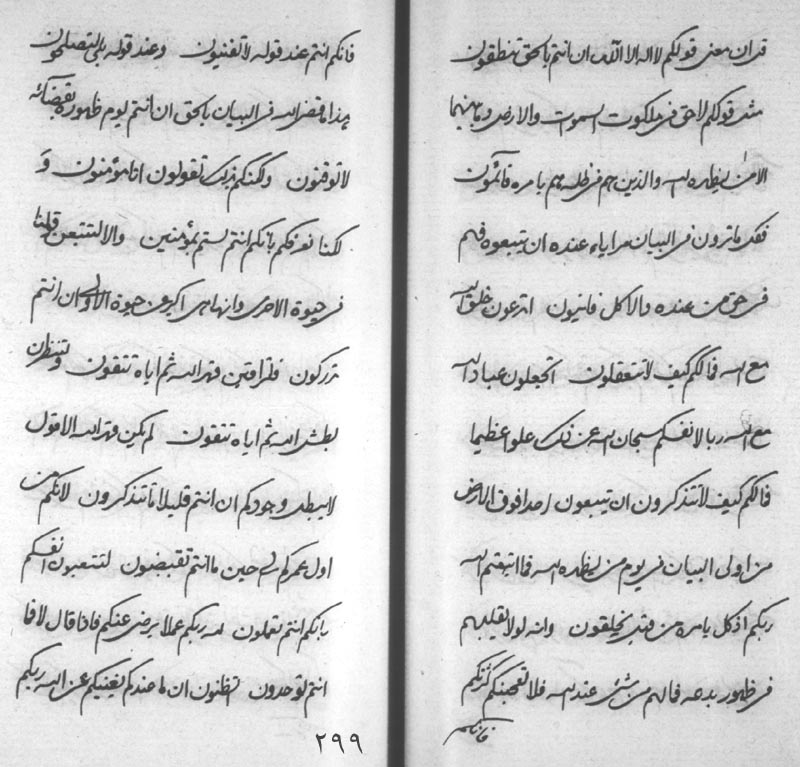 قل ان معنى قولكم لا اله الا الله ان انتم بالحق تنطقون
مثل قولكم لا حق في ملكوت السموات والارض وما بينهما
الا من يظهره الله والذين هم في ظله هم بامره قائمون
فكل ما ترون في البيان مرايا عنده ان تتبعوه فهم
في حق من عنده والا كل فانيون اتدعون خلق الله
مع الله فما لكم كيف لا تتعقلون اتجعلون عباد الله
مع الله ربا لانفسكم سبحان الله عن ذلك علوا عظيما
فما لكم كيف لا تتذكرون ان تتبعون احدا فوق الارض
من اولى البيان في يوم من يظهره الله فما اتبعتم الله
ربكم اذ كل بامره من قبل يخلقون وانه لولا يقلبهم
في ظهور بدعه فما لهم من شئ عند الله فلا تعجبنكم كثرتكم
فانكم
فانكم انتم عند قوله لا تفنيون وعند قوله بلى لتصلحون
هذا ما قضى الله في البيان بالحق ان انتم يوم ظهوره بقضائه
لا توقنون ولكنكم قبل ذلك تقولون انا مؤمنون و
لكنا نعرفكم بانكم انتم لستم بمؤمنين والا لتتبعن قولنا
في حيوة الاخرى وانها هي اكبر عن حيوة الاولى ان انتم
تدركون فلتراقبن قهر الله ثم اياه تتقون ولتنظرن
بطش الله ثم اياه تتقون لم يكن قهر الله الا قول
لا يبطل وجودكم ان انتم قليلا ما تتذكرون لانكم من
اول عمركم الى حين ما انتم تقبضون لتتعبون انفسكم
بانكم انتم تعملون لله ربكم عملا يرضى عنكم فاذا قال لا فا
انتم لو حدون تظنون ان ما عندكم يغنيكم عن الله ربكم
٢٩٩